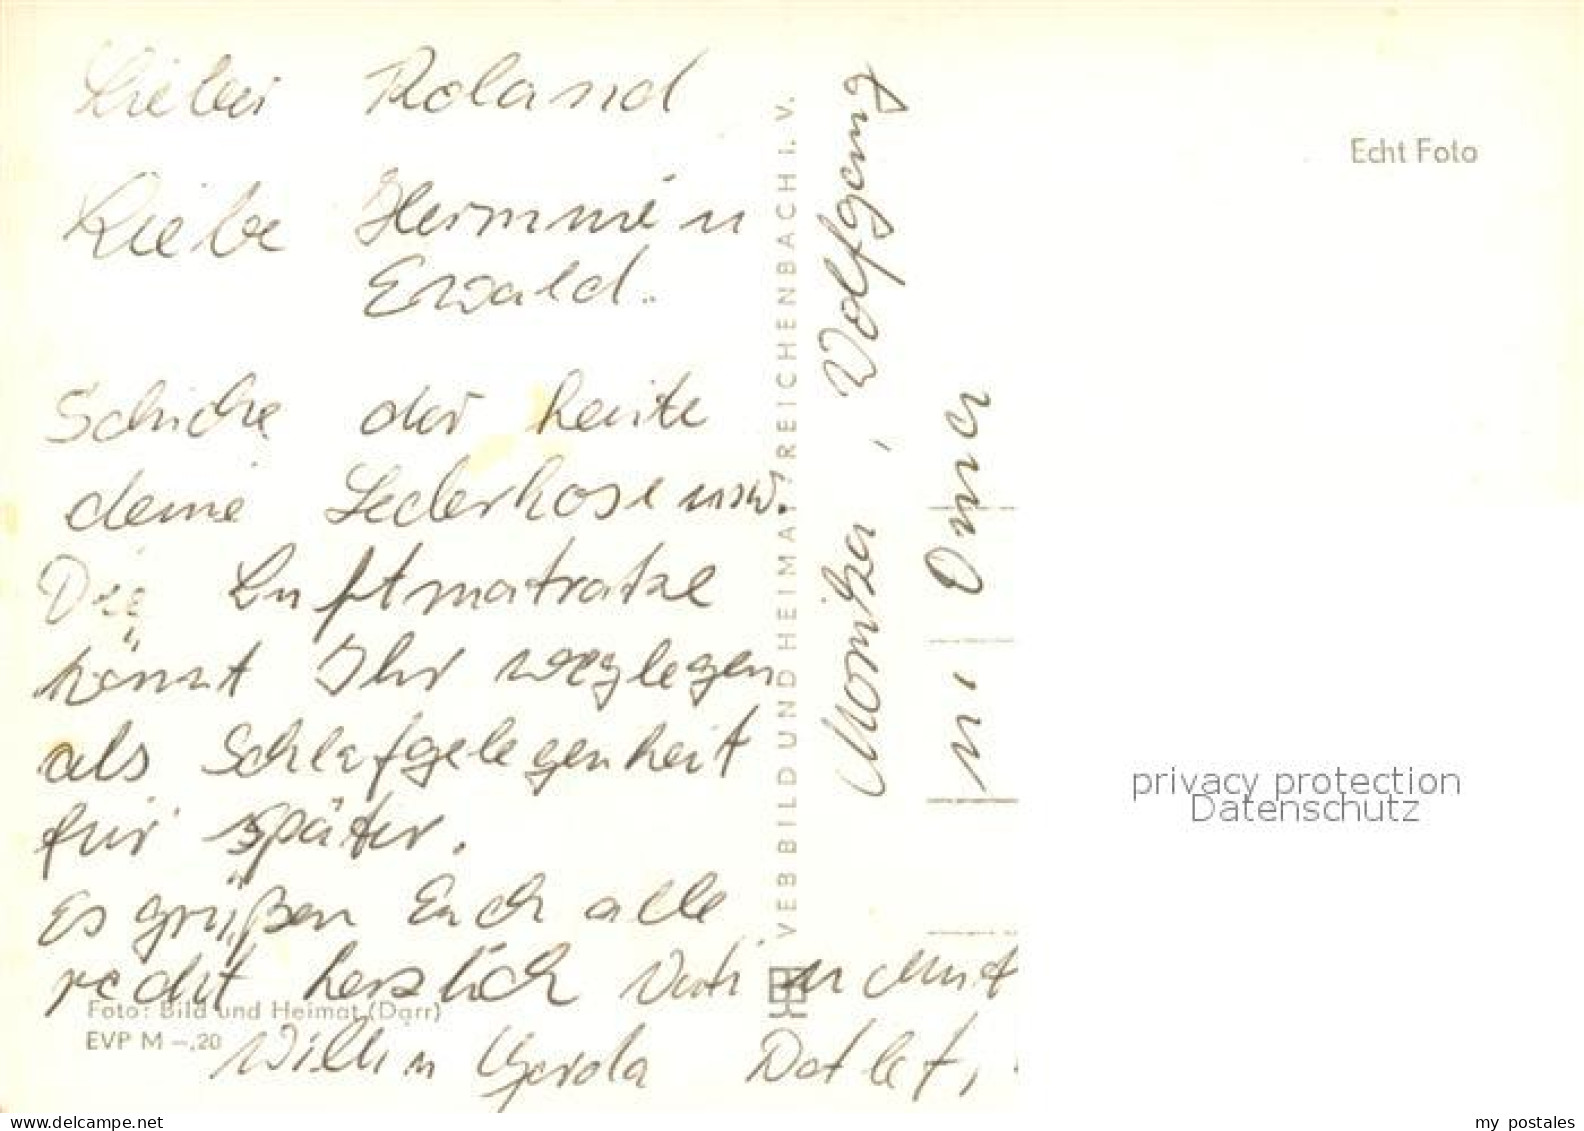 Lieber Roland
Liebe Hermine u
Ewald.
Schicke dir heute
deine Lederhose usw.
Die Luftmatratze
könnt Ihr weglegen
als Schlafgelegenheit
für später.
Es grüßen Euch alle
recht herzlich Vati u Mut
Willi u Gerda Detlef,
Monika, Wolfgang
u. Oma
VEB BILD UND HEIMAT REICHENBACH I. V.
Foto: Bild und Heimat (Darr)
EVP M –,20
Echt Foto
privacy protection
Datenschutz
www.delcampe.net
my postales